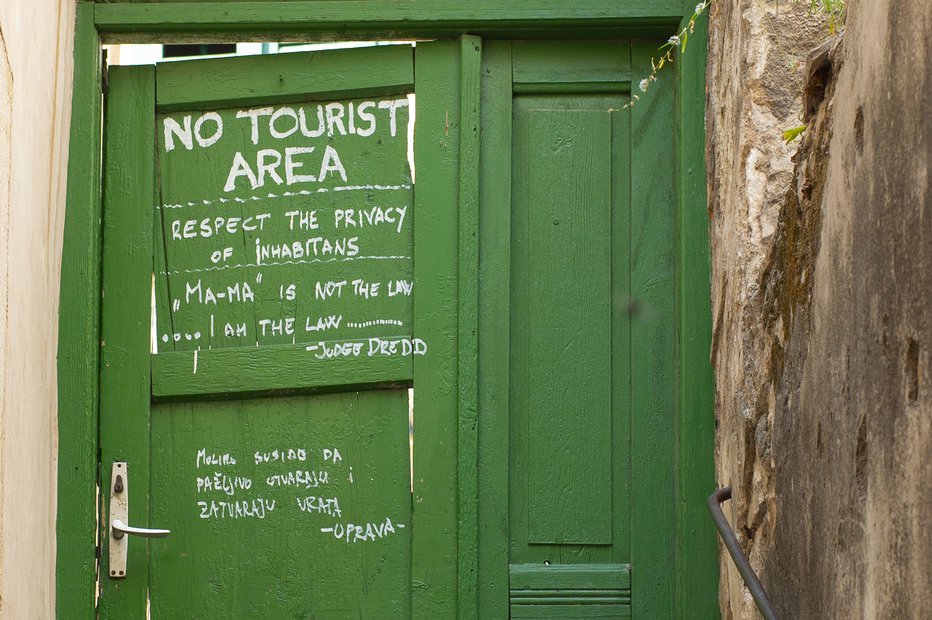 NO TOURIST
AREA
RESPECT THE PRIVACY
OF INHABITANS
„MA-MA" IS NOT THE LAW
.... I AM THE LAW ..........
-JUDGE DREDD
MOLIMO SUSJEDE DA
PAŽLJIVO OTVARAJU I
ZATVARAJU VRATA
-UPRAVA-